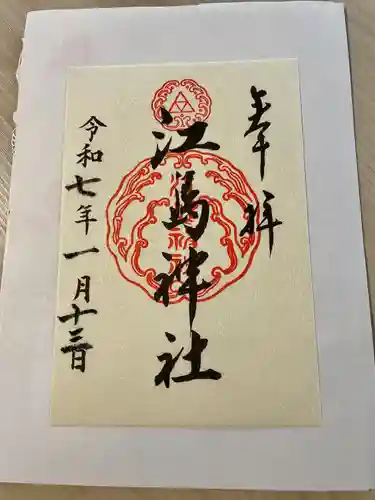 奉拝
江島神社
令和七年一月十三日